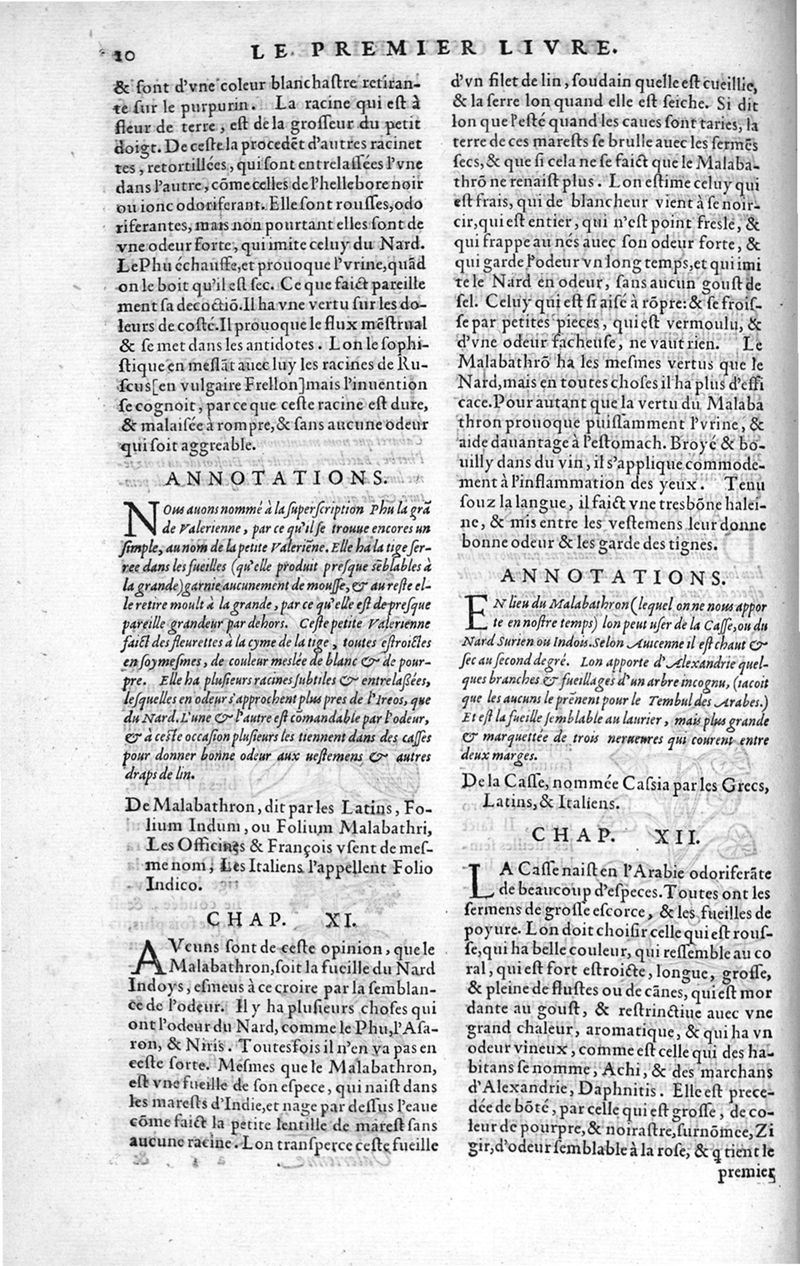 10
LE PREMIER LIVRE.
& sont d'vne coleur blanchastre retiran-
te sur le purpurin. La racine qui est à
fleur de terre, est de la grosseur du petit
doigt. De ceste la procedẽt d'autres racinet
tes, retortillées, qui sont entrelassées l'vne
dans l'autre, cõme celles de l'hellebore noir
ou ionc odoriferant. Elle sont rousses, odo
riferantes, mais non pourtant elles sont de
vne odeur forte, qui imite celuy du Nard.
Le Phu échauffe, et prouoque l'vrine, quãd
on le boit qu'il est sec. Ce que faict pareille
ment sa decoctiõ. Il ha vne vertu sur les do-
leurs de costé. Il prouoque le flux mẽstrual
& se met dans les antidotes. Lon le sophi-
stique en meslãt auec luy les racines de Ru-
scus[en vulgaire Frellon]mais l'inuention
se cognoit, par ce que ceste racine est dure,
& malaisée à rompre, & sans aucune odeur
qui soit aggreable.
ANNOTATIONS.
NOus auons nommé à la superscription Phu la grã
de Valerienne, par ce qu'il se trouue encores un
simple, au nom de la petite Valeriẽne. Elle ha la tige ser-
ree dans les fueilles (qu'elle produit presque sẽblables à
la grande) garnie aucunement de mousse, & au reste el-
le retire moult à la grande, par ce qu'elle est de presque
pareille grandeur par dehors. Ceste petite Valerienne
faict des fleurettes à la cyme de la tige, toutes estroictes
en soymesmes, de couleur meslée de blanc & de pour-
pre. Elle ha plusieurs racines subtiles & entrelassées,
lesquelles en odeur s'approchent plus pres de l'Ireos, que
du Nard. L'une & l'autre est cõmandable par l'odeur,
& à ceste occasion plusieurs les tiennent dans des casses
pour donner bonne odeur aux uestemens & autres
draps de lin.
De Malabathron, dit par les Latins, Fo-
lium Indum, ou Folium Malabathri,
Les Officines & François vsent de mes-
me nom, Les Italiens l'appellent Folio
Indico.
CHAP. XI.
AVcuns sont de ceste opinion, que le
Malabathron, soit la fueille du Nard
Indoys, esmeus à ce croire par la semblan-
ce de l'odeur. Il y ha plusieurs choses qui
ont l'odeur du Nard, comme le Phu, l'Asa-
ron, & Niris. Toutesfois il n'en va pas en
ceste sorte. Mésmes que le Malabathron,
est vne fueille de son espece, qui naist dans
les marests d'Indie, et nage par dessus l'eaue
cõme faict la petite lentille de marest sans
aucune racine. Lon transperce ceste fueille
d'vn filet de lin, soudain quelle est cueillie,
& la serre lon quand elle est seiche. Si dit
lon que l'esté quand les caues sont taries, la
terre de ces marests se brulle auec les sermẽs
secs, & que si cela ne se faict que le Malaba-
thrõ ne renaist plus. Lon estime celuy qui
est frais, qui de blancheur vient à se noir-
cir, qui est entier, qui n'est point fresle, &
qui frappe au nés auec son odeur forte, &
qui garde l'odeur vn long temps, et qui imi
te le Nard en odeur, sans aucun goust de
sel. Celuy qui est si aisé à rõpre: & se frois-
se par petites pieces, qui est vermoulu, &
d'vne odeur facheuse, ne vaut rien. Le
Malabathrõ ha les mesmes vertus que le
Nard, mais en toutes choses il ha plus d'effi
cace. Pour autant que la vertu du Malaba
thron prouoque puissamment l'vrine, &
aide dauantage à l'estomach. Broyé & bo-
uilly dans du vin, il s'applique commode-
ment à l'inflammation des yeux. Tenu
souz la langue, il faict vne tresbõne halei-
ne, & mis entre les vestemens leur donne
bonne odeur & les garde des tignes.
ANNOTATIONS.
EN lieu du Malabathron (lequel on ne nous appor
te en nostre temps) lon peut user de la Casse, ou du
Nard Surien ou Indois. Selon Auicenne il est chaut &
sec au second degré. Lon apporte d'Alexandrie quel-
ques branches & fueillages d'un arbre incognu, (iacoit
que les aucuns le prẽnent pour le Tembul des Arabes.)
Et est la fueille semblable au laurier, mais plus grande
& marquettée de trois nerueures qui courent entre
deux marges.
De la Casse, nommée Cassia par les Grecs,
Latins, & Italiens.
CHAP. XII.
LA Casse naist en l'Arabie odoriferãte
de beaucoup d'especes. Toutes ont les
sermens de grosse escorce, & les fueilles de
poyure. Lon doit choisir celle qui est rous-
se, qui ha belle couleur, qui ressemble au co
ral, qui est fort estroicte, longue, grosse,
& pleine de flustes ou de cãnes, qui est mor
dante au goust, & restrinctiue auec vne
grand chaleur, aromatique, & qui ha vn
odeur vineux, comme est celle qui des ha-
bitans se nomme, Achi, & des marchans
d'Alexandrie, Daphnitis. Elle est prece-
dée de bõté, par celle qui est grosse, de co-
leur de pourpre, & noirastre, surnõmee, Zi
gir, d'odeur semblable à la rose, & q tient le
premier